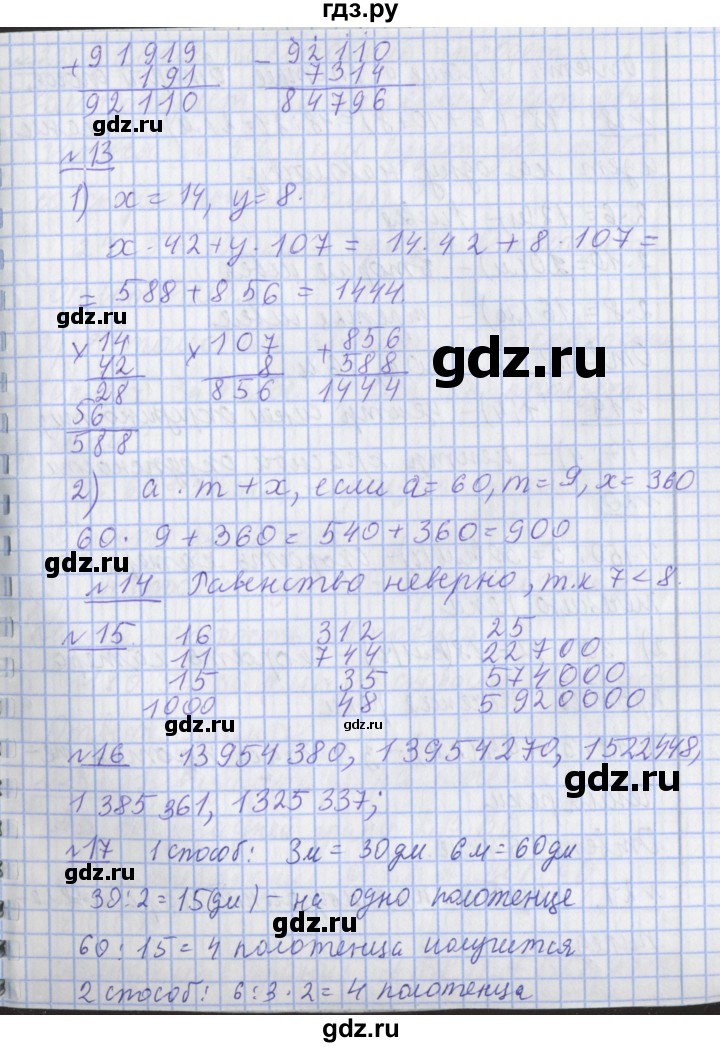 гдз.ру
+ 91919   - 92110
191   7314
92110   84796
gdz.ru
№13
1) x = 14, y = 8.
x · 42 + y · 107 = 14 · 42 + 8 · 107 =
= 588 + 856 = 1444.
gdz.ru
× 14   × 107   + 856
42   8   588
28   856   1444
56
588
gdz.ru
2) a · m + x, если a = 60, m = 9, x = 360
60 · 9 + 360 = 540 + 360 = 900
gdz.ru
№14 Равенство неверно, т.к 7 < 8.
№15   16   312   25
11   744   22700
15   35   574000
1000   48   5920000
gdz.ru
gdz.ru
№16   13954380, 13954270, 1522448,
gdz.ru
1385361, 1325337;
№17   1 способ: 3м = 30дм 6м = 60дм
gdz.ru
30 : 2 = 15(дм) - на одно полотенце
gdz.ru
60 : 15 = 4 полотенца получится
gdz.ru
2 способ: 6 : 3 · 2 = 4 полотенца
gdz.ru